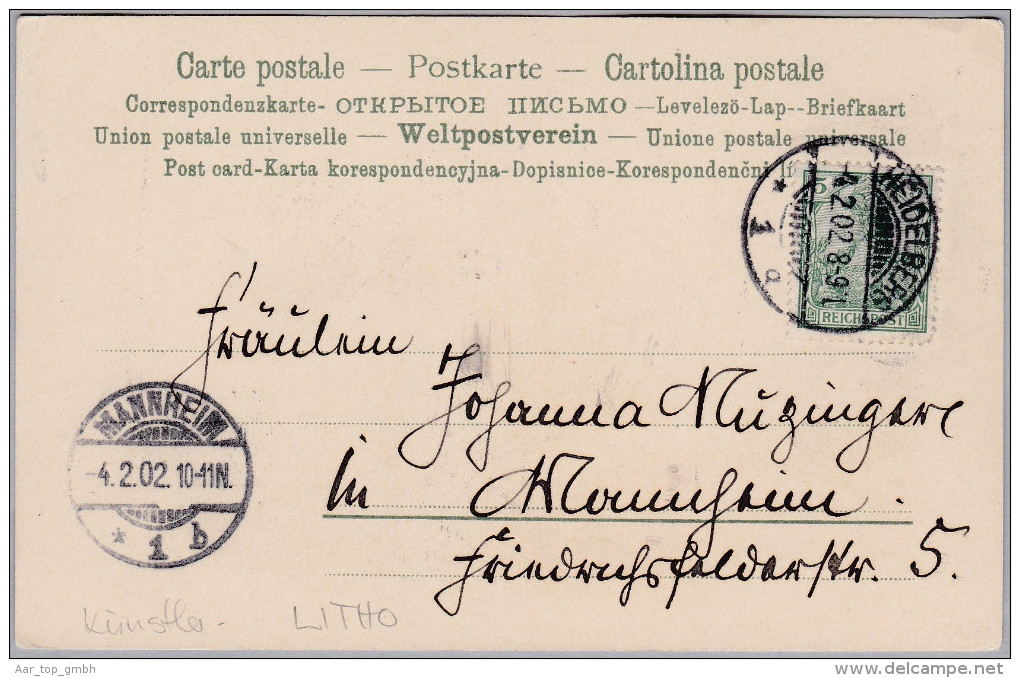 Carte postale — Postkarte — Cartolina postale
Correspondenzkarte- ОТКРЫТОЕ ПИСЬМО —Levelezö-Lap--Briefkaart
Union postale universelle — Weltpostverein — Unione postale universale
Post card-Karta korespondencyjna-Dopisnice-Korespondenčni li
5
REICHSPOST
HEIDELBERG
4.2.02. 8-9
* 1
Fräulein
Johanna
in Mannheim.
Friedrichsfelderstr. 5.
MANNHEIM
-4.2.02. 10-11N.
* 1 b
Künstler- LITHO
Aar_top_gmbh
delcampe.net